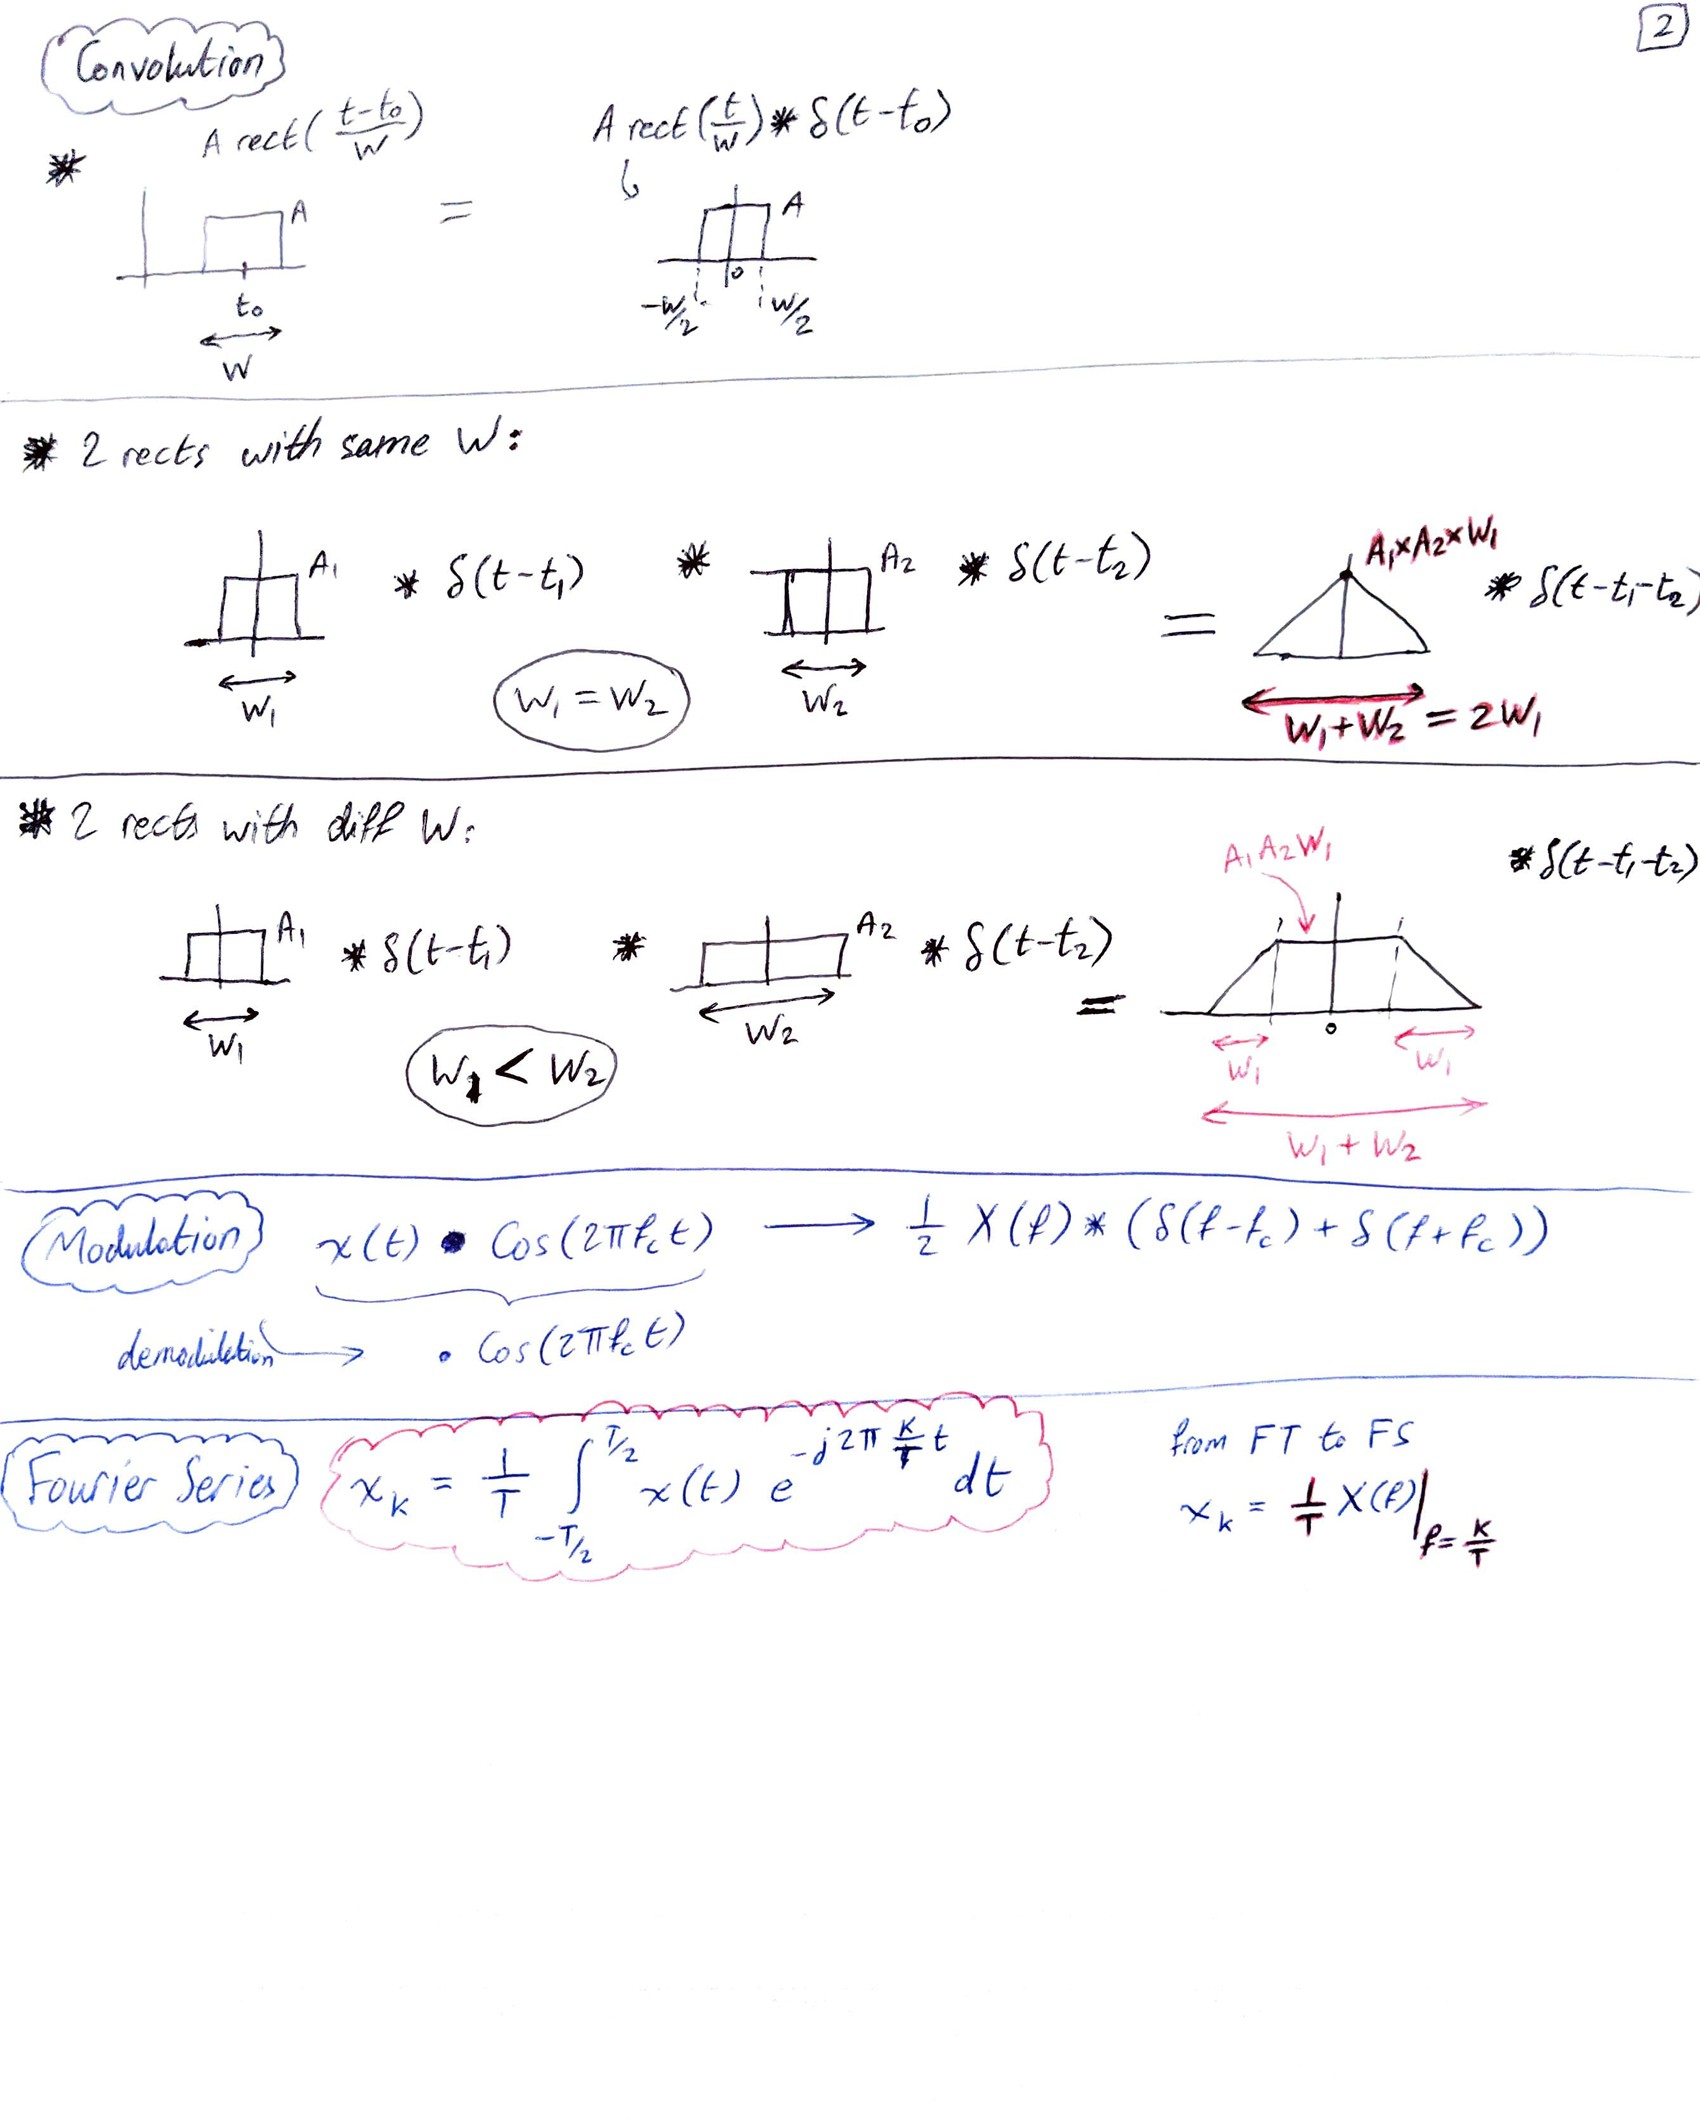 2
Convolution
* A rect((t-t₀)/W) A rect(t/W) * δ(t-t₀)
A = A
t₀ -W/2 0 W/2
W
* 2 rects with same W:
A₁ * δ(t-t₁) * A₂ * δ(t-t₂) = A₁×A₂×W₁ * δ(t-t₁-t₂)
W₁ W₁ = W₂ W₂ W₁+W₂ = 2W₁
* 2 rects with diff W:
A₁A₂W₁ * δ(t-t₁-t₂)
A₁ * δ(t-t₁) * A₂ * δ(t-t₂) =
0
W₁ W₂ W₁ W₁
W₁ < W₂
W₁ + W₂
Modulation x(t) • Cos(2πf_c t) ⟶ 1/2 X(f) * (δ(f-f_c) + δ(f+f_c))
demodulation ⟶ • Cos(2πf_c t)
Fourier Series x_k = 1/T ∫_{-T/2}^{T/2} x(t) e^{-j2π (K/T) t} dt
from FT to FS
x_k = 1/T X(f)|_{f = K/T}